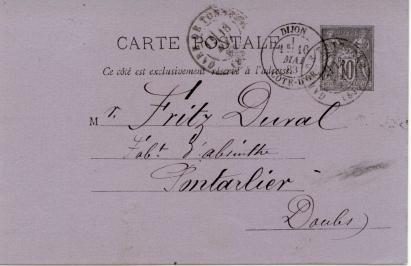 CARTE POSTALE
Ce côté est exclusivement réservé à l'adresse.
DIJON
16
MAI
COTE-D'OR
10
M r. Fritz Duval
Fabt. d'absinthe
Pontarlier
Doubs